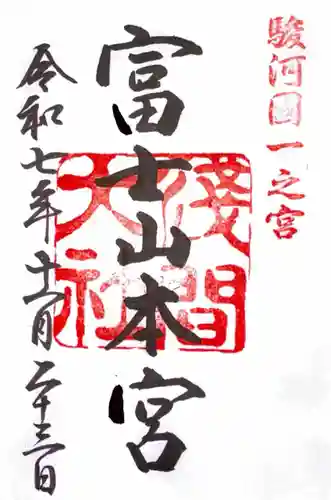 駿河國一之宮
富士山本宮
淺間大社
令和七年十一月二十三日